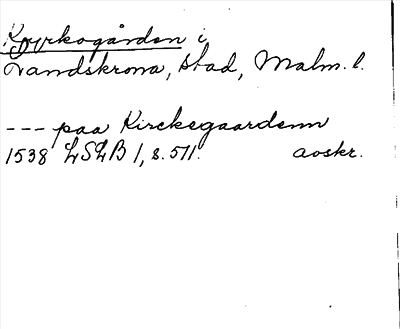 Kyrkogården i
Landskrona, stad, Malm. l.
--- paa Kirckegaardenn
1538 LSLB 1, s. 511. avskr.